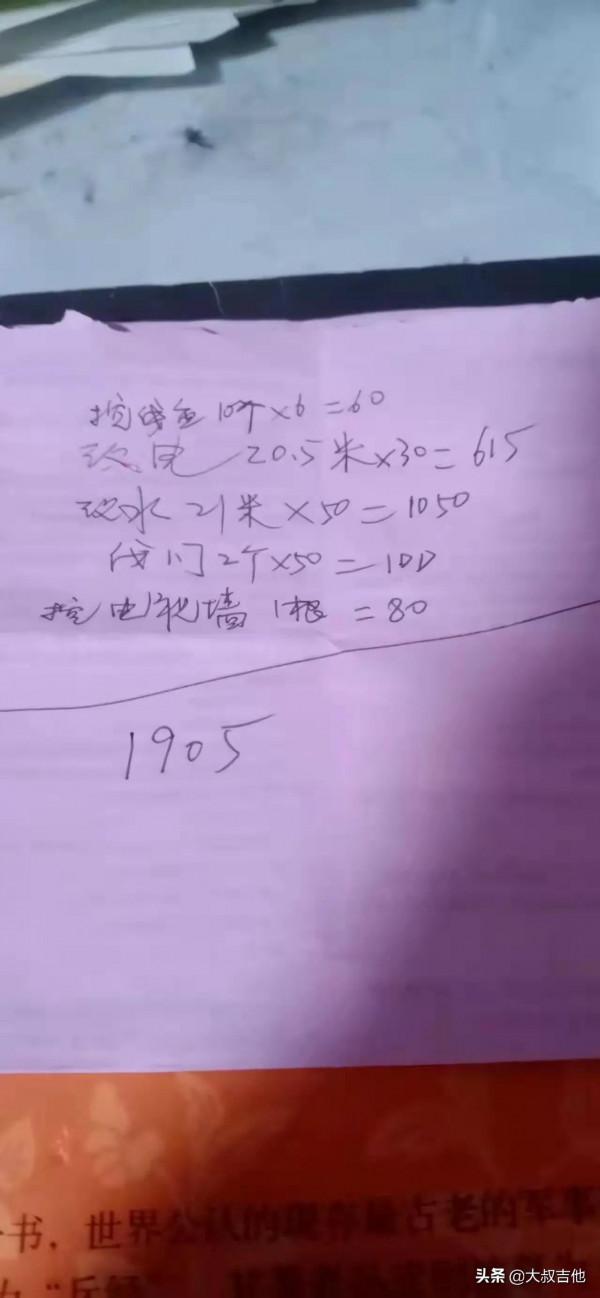 挖线盒10个×6=60
改电 20.5米×30=615
改水 21米×50=1050
阀门2个×50=100
挖电视墙 1根 =80
1905
书,世界公认的现存最古老的军事
头条 @大叔吉他